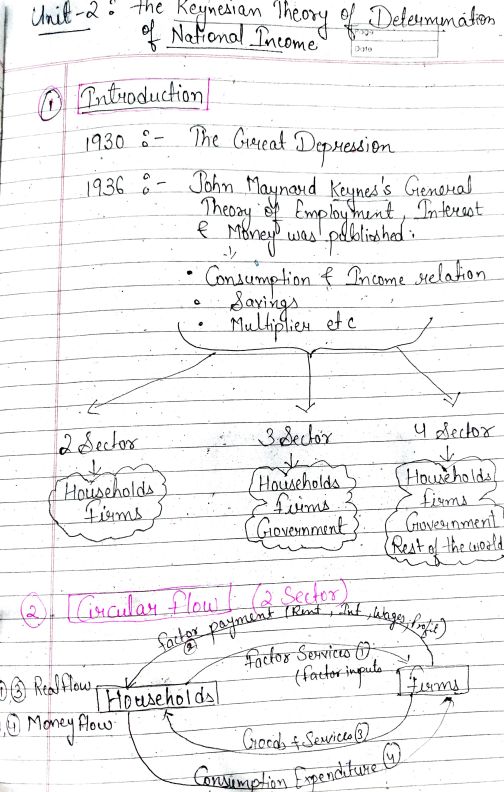 Unit-2 : the Keynesian Theory of Determination
of National Income
Date
① Introduction
1930 :- The Great Depression
1936 :- John Maynard Keynes's General
Theory of Employment, Interest
& Money was published.
• Consumption & Income relation
• Savings
• Multiplier etc
2 Sector 3 Sector 4 Sector
Households
Firms
Households
Firms
Government
Households
firms
Government
Rest of the world
② Circular flow (2 Sector)
factor payment (Rent, Int, Wages, Profit)
②
Factor Services ①
(factor inputs
③ Real flow
Households
Firms
Money flow
Goods & Services ③
Consumption Expenditure ④